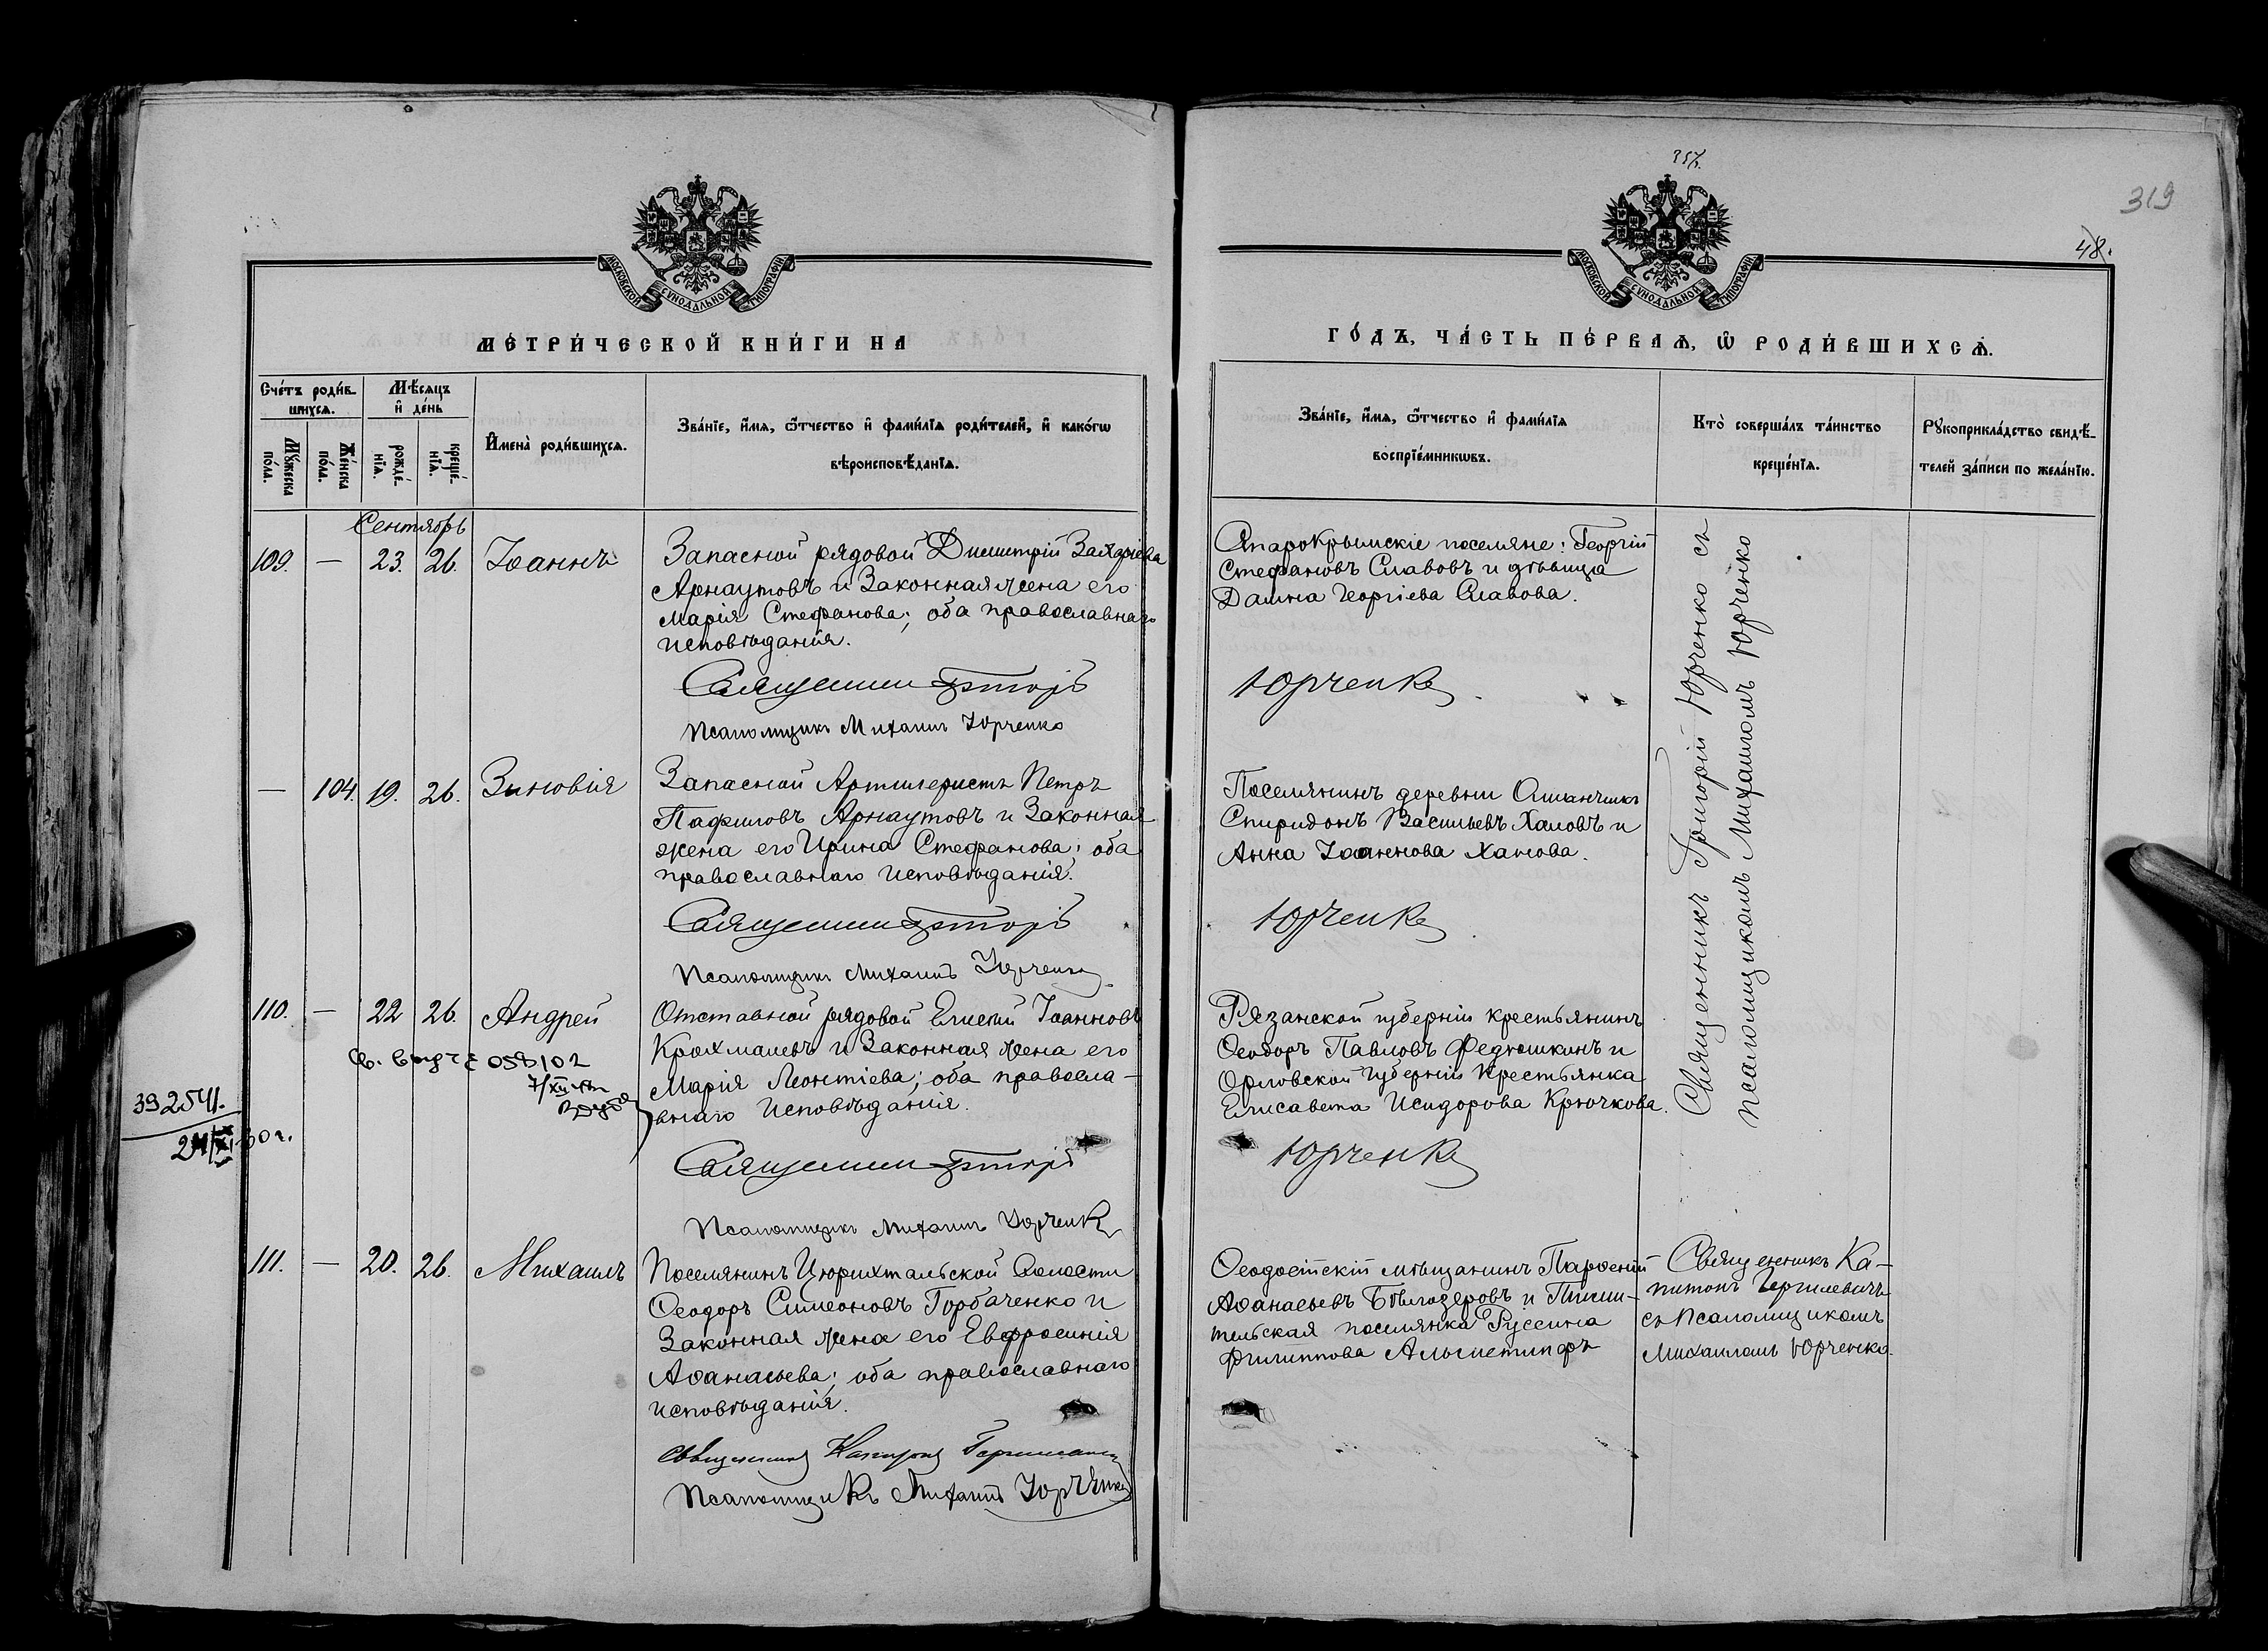 357.
319
48.
МОСКОВСКОЙ СУНОДАЛЬНОЙ ТИПОГРАФІИ
МОСКОВСКОЙ СУНОДАЛЬНОЙ ТИПОГРАФІИ
МЕ́ТРИ́ЧЕСКОЙ КНИ́ГИ НА
ГО́ДЪ, ЧА́СТЬ ПЕ́РВАѦ, Ѡ҆ РОДИ́ВШИХСѦ.
Сче́тъ роди́в-
шихсѧ.
Мꙋ́жеска по́ла.
Же́нска по́ла.
Мѣ́сѧцъ
и҆ де́нь
рожде́-
нїѧ.
креще́-
нїѧ.
И҆мена̀ роди́вшихсѧ.
Зва́нїе, и҆́мѧ, ѻ҆́тчество и҆ фами́лїѧ роди́телей, и҆ како́гѡ
вѣроисповѣ́данїѧ.
Зва́нїе, и҆́мѧ, ѻ҆́тчество и҆ фами́лїѧ
воспрїе́мникѡвъ.
Кто̀ соверша́лъ та́инство
креще́нїѧ.
Рꙋкоприкла́дство свидѣ́-
телей за́писи по жела́нїю.
Сентябрь
109. — 23. 26. Іоаннъ
Запасной рядовой Димитрій
Арнаутовъ и законная жена его
Марія Стефанова; оба православнаго
исповѣданія.
Священникъ Григорій
Псаломщикъ Михаилъ Юрченко
Старокрымскіе поселяне: Георгій
Стефановъ Славовъ и дѣвица
Дамна Георгіева Славова.
Юрченко
Священникъ Григорій Юрченко съ
псаломщикомъ Михаиломъ Юрченко
— 104. 19. 26. Зиновія
Запасной Артилеристъ Петръ
Арнаутовъ и законная
жена его Ирина Стефанова; оба
православнаго исповѣданія.
Священникъ Григорій
Псаломщикъ Михаилъ Юрченко
Поселянинъ деревни
Спиридонъ Васильевъ и
Анна Іоаннова
Юрченко
110. — 22 26. Андрей
Отставной рядовой Елисей Іоанновъ
Крохмалевъ и законная жена его
Марія Леонтіева; оба правосла-
внаго исповѣданія.
058102
392541.
Священникъ Григорій
Псаломщикъ Михаилъ Юрченко
Рязанской губерніи крестьянинъ
Ѳеодоръ Павловъ Федюшкинъ и
Орловской губерніи крестьянка
Елисавета Исидорова Крючкова.
Юрченко
111. — 20. 26. Михаилъ
Поселянинъ Цюрихтальской волости
Ѳеодоръ Симеоновъ Горбаченко и
законная жена его Евфросинія
Аѳанасьева; оба православнаго
исповѣданія.
Священникъ Капитонъ
Псаломщикъ Михаилъ Юрченко
Ѳеодосійскій мѣщанинъ Парѳеній
Аѳанасьевъ Бѣлозеровъ и
поселянка
Филиппова
Священникъ Ка-
питонъ
съ псаломщикомъ
Михаиломъ Юрченко.